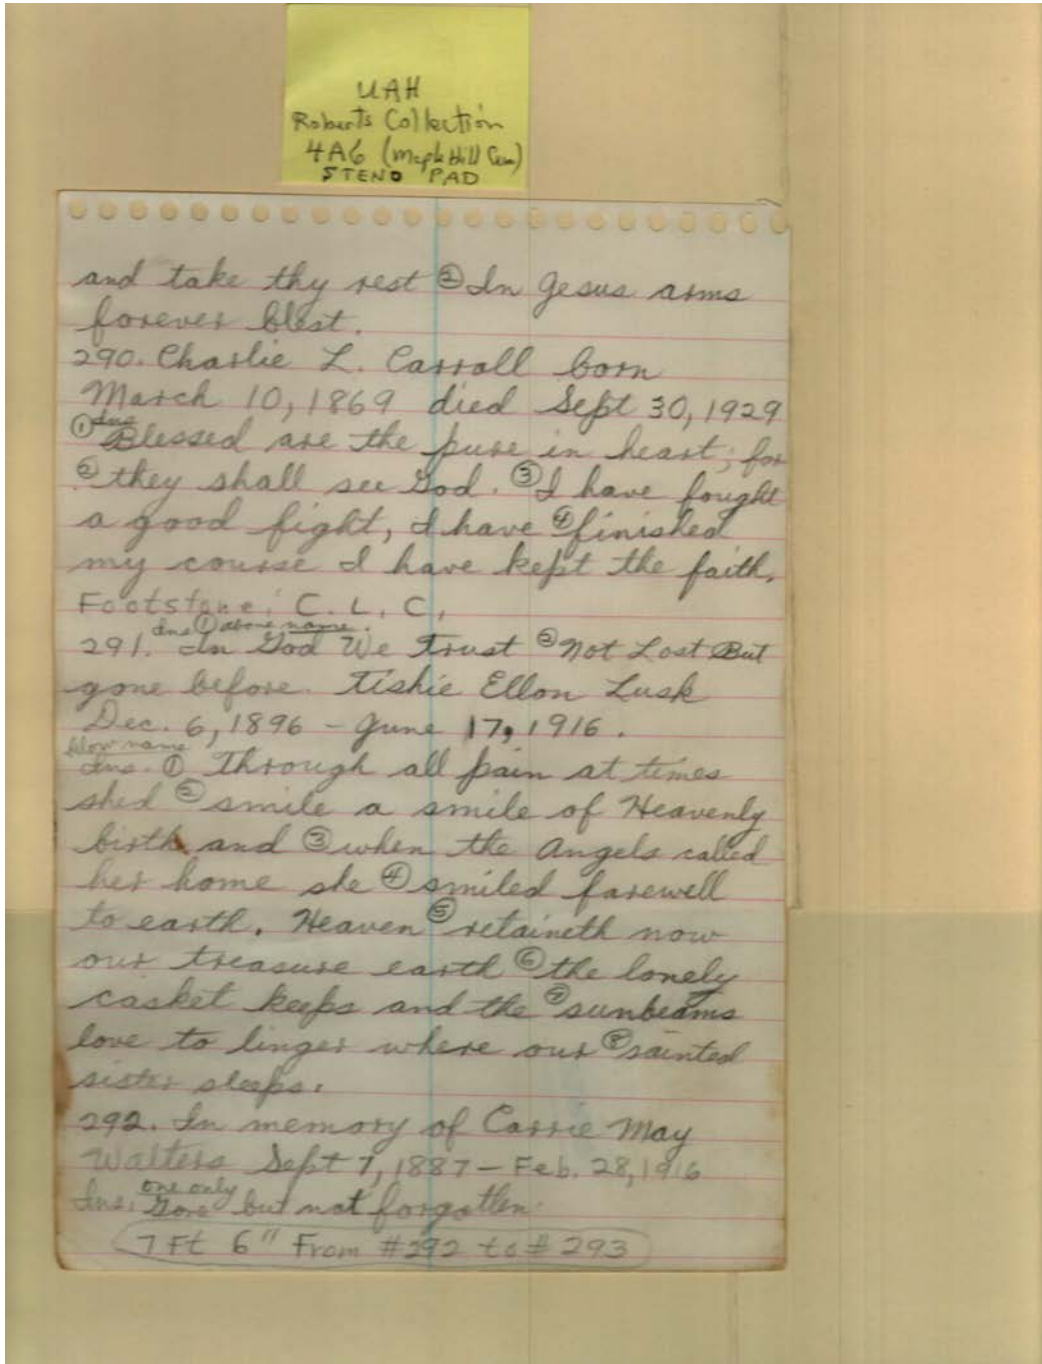 UAH
Roberts Collection
4A6 (Maple Hill Cem)
STENO PAD
and take thy rest ② In Jesus arms
forever blest.
290. Charlie L. Carroll born
March 10, 1869 died Sept 30, 1929
① Ins Blessed are the pure in heart; for
② they shall see God. ③ I have fought
a good fight, I have ④ finished
my course I have kept the faith.
Footstone: C. L. C.
Ins ① above name.
291. In God We Trust ② Not Lost But
gone before. Tishie Ellon Lusk
Dec. 6, 1896 - June 17, 1916.
blow name
Ins. ① Through all pain at times
shed ② smile a smile of Heavenly
birth and ③ when the Angels called
her home she ④ smiled farewell
to earth. Heaven ⑤ retaineth now
our treasure earth ⑥ the lonely
casket keeps and the ⑦ sunbeams
love to linger where our ⑧ sainted
sister sleeps.
292. In memory of Carrie May
Walters Sept 7, 1887 - Feb. 28, 1916
one only
Ins. Gone but not forgotten.
7 Ft 6" From #292 to # 293